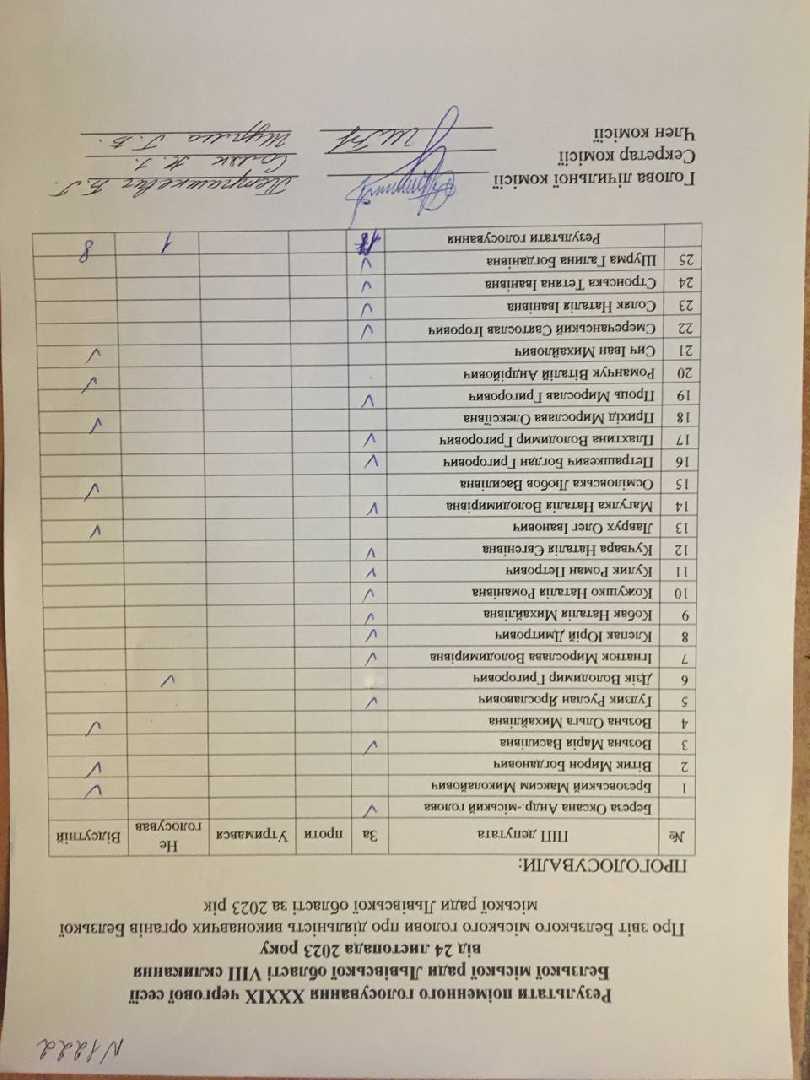 N 1222
Результати поіменного голосування XXXIX чергової сесії
Белзької міської ради Львівської області VIII скликання
від 24 листопада 2023 року
Про звіт Белзького міського голови про діяльність виконавчих органів Белзької
міської ради Львівської області за 2023 рік
ПРОГОЛОСУВАЛИ:
№ ПІП депутата За проти Утримався Не голосував Відсутній
Береза Оксана Андр.-міський голова V
1 Брезовський Максим Миколайович V
2 Вітик Мирон Богданович V
3 Возьна Марія Василівна V
4 Возьна Ольга Михайлівна V
5 Гудзик Руслан Ярославович V
6 Дзік Володимир Григорович V
7 Ігнатюк Мирослава Володимирівна V
8 Клепек Юрій Дмитрович V
9 Кобак Наталія Михайлівна V
10 Кожушко Наталія Романівна V
11 Кулик Роман Петрович V
12 Кучвара Наталія Євгенівна V
13 Лаврух Олег Іванович V
14 Магулка Наталія Володимирівна V
15 Осміловська Любов Василівна V
16 Петрашкевич Богдан Григорович V
17 Плахтина Володимир Григорович V
18 Прихід Мирослава Олексіївна V
19 Проць Мирослав Григорович V
20 Романчук Віталій Андрійович V
21 Сич Іван Михайлович V
22 Смеречанський Святослав Ігорович V
23 Соляк Наталія Іванівна V
24 Стронська Тетяна Іванівна V
25 Шурма Галина Богданівна V
Результати голосування 1 8
Голова лічильної комісії Петрашкевич Б.Г.
Секретар комісії Соляк Н.І.
Член комісії Шурма Г.Б.